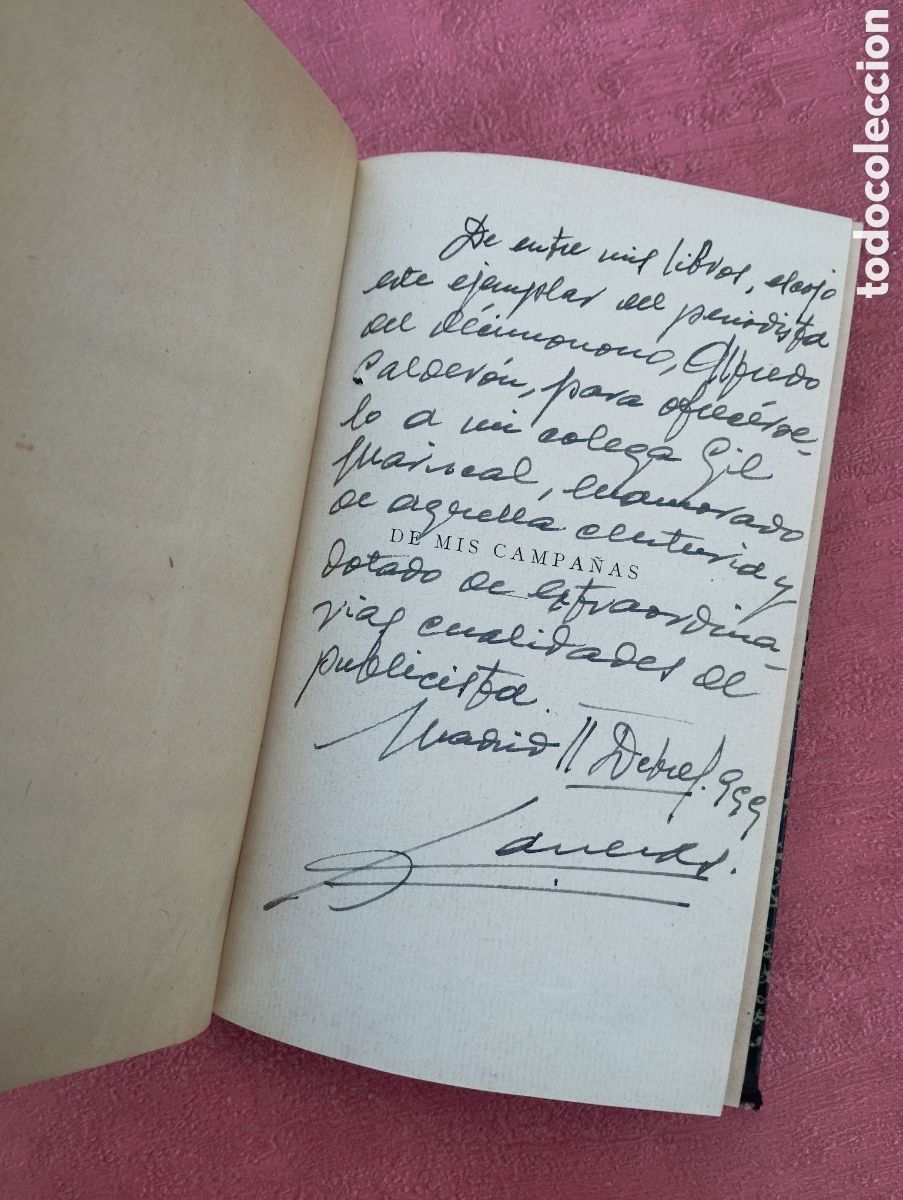 De entre mis libros, escojo
este ejemplar del periodista
del décimonono, Alfredo
Calderón, para ofrecérse-
lo a mi colega Gil
Mariscal, enamorado
de aquella centuria y
DE MIS CAMPAÑAS
dotado de extraordina-
rias cualidades de
publicista.
Madrid 11 Dcbre. 999
todocoleccion